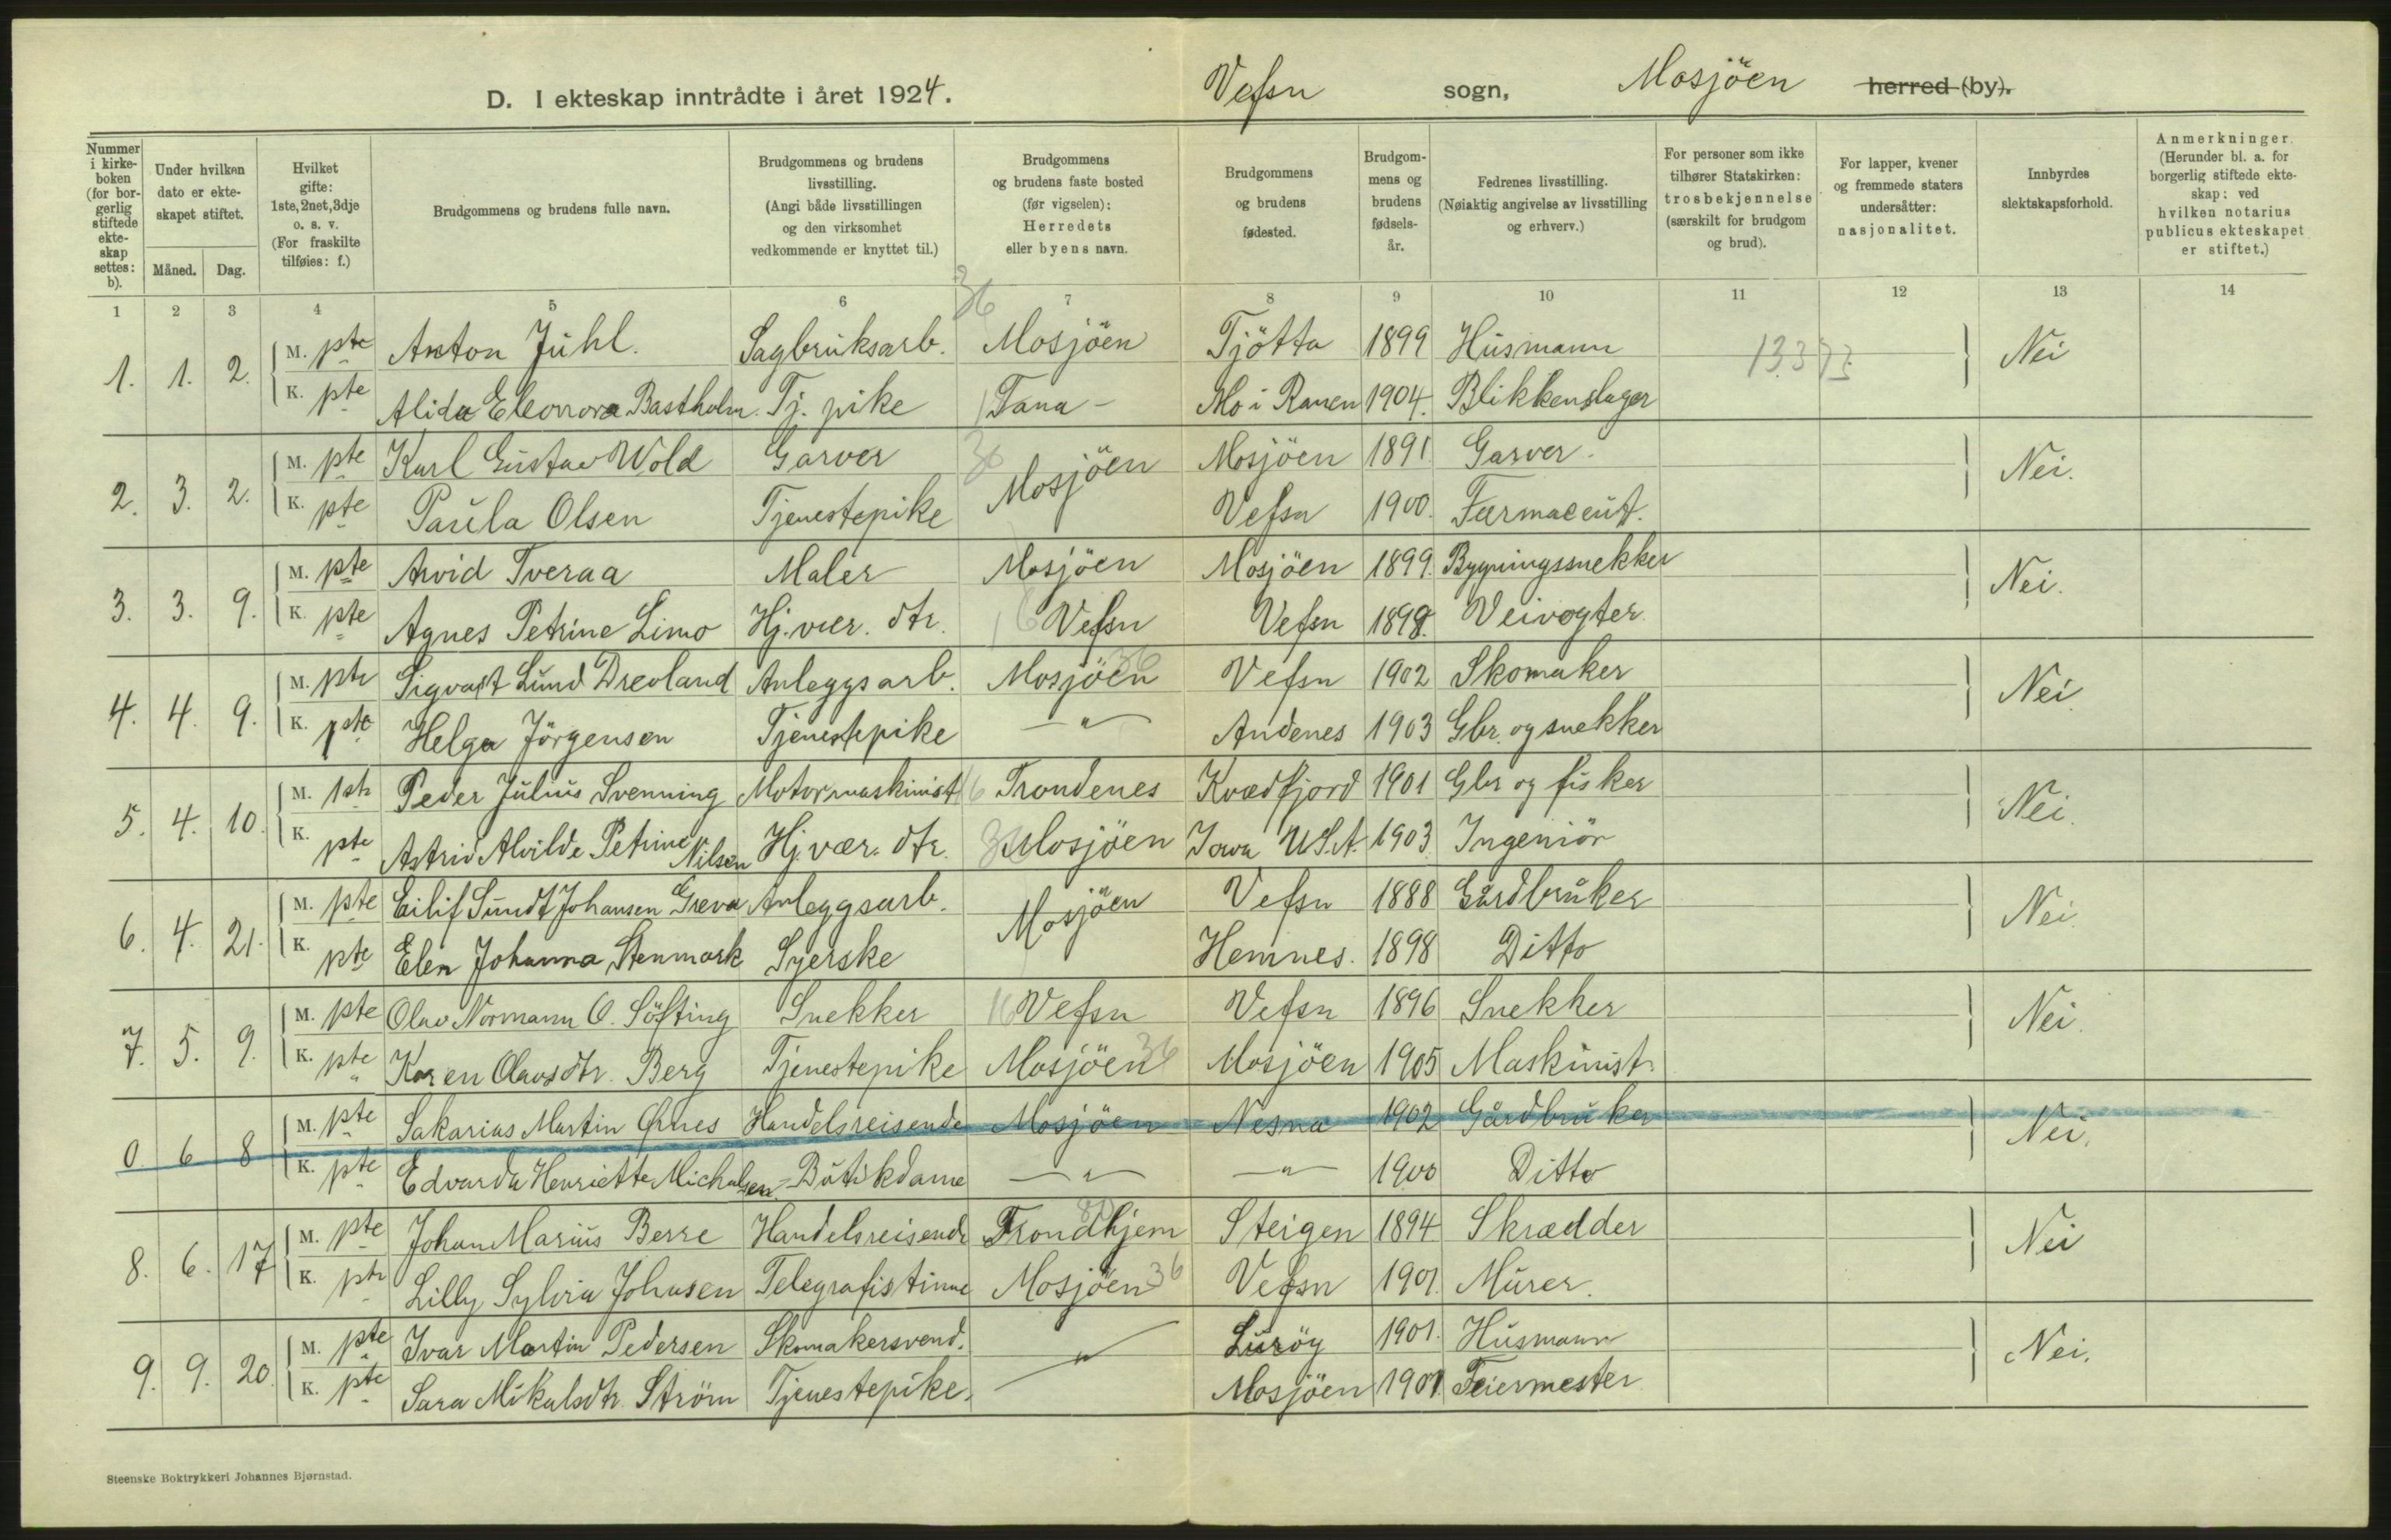 D. I ekteskap inntrådte i året 1924. Vefsn sogn, Mosjöen herred (by).
Nummer i kirke-boken (for bor-gerlig stiftede ekte-skap settes: b).
Under hvilken dato er ekte-skapet stiftet.
Måned. Dag.
Hvilket gifte: 1ste, 2net, 3dje o. s. v. (For fraskilte tilføies: f.)
Brudgommens og brudens fulle navn.
Brudgommens og brudens livsstilling. (Angi både livsstillingen og den virksomhet vedkommende er knyttet til.)
Brudgommens og brudens faste bosted (før vigselen): Herredets eller byens navn.
Brudgommens og brudens fødested.
Brudgom-mens og brudens fødsels-år.
Fedrenes livsstilling. (Nøiaktig angivelse av livsstilling og erhverv.)
For personer som ikke tilhører Statskirken: trosbekjennelse (særskilt for brudgom og brud).
For lapper, kvener og fremmede staters undersåtter: nasjonalitet.
Innbyrdes slektskapsforhold.
Anmerkninger. (Herunder bl. a. for borgerlig stiftede ekte-skap: ved hvilken notarius publicus ekteskapet er stiftet.)
1 2 3 4 5 6 7 8 9 10 11 12 13 14
36
1. 1. 2. M. pte Anton Juhl. Sagbruksarb. Mosjöen Tjötta 1899 Husmann Nei
K. pte Alida Eleonora Bastholm. Tj. pike Tana - Mo i Ranen 1904. Blikkenslager
2. 3. 2. M. pte Karl Gustav Wold Garver 36 Mosjöen Mosjöen 1891 Garver. Nei.
K. pte Paula Olsen Tjenestepike Vefsn 1900. Farmaceut.
3. 3. 9. M. pte Arvid Tveraa Maler Mosjöen Mosjöen 1899. Bygningssnekker Nei.
K. pte Agnes Petrine Limo Hj. vær. dtr. Vefsn Vefsn 1898. Veivogter
4. 4. 9. M. pte Sigvart Lund Drevland Anleggsarb. Mosjöen 36 Vefsn 1902 Skomaker Nei
K. pte Helga Jörgensen Tjenestepike — " — Andenes 1903 Gbr. og snekker
5. 4. 10. M. 1ste Peder Julius Svenning Motormaskinist 16 Trondenes Kvædfjord 1901 Gbr og fisker Nei.
K. pte Astrid Alvilde Petrine Nilsen Hj. vær. dtr. 36 Mosjöen Iowa U.S.A. 1903 Ingeniör
6. 4. 21. M. pte Eilif Sundt Johansen Greva Anleggsarb. Mosjöen Vefsn 1888 Gårdbruker Nei.
K. pte Elen Johanna Stenmark Syerske Hemnes. 1898 Ditto
7. 5. 9. M. pte Olav Normann O. Söfting Snekker 16 Vefsn Vefsn 1896 Snekker Nei.
K. pte Karen Olavsdtr. Berg Tjenestepike Mosjöen 36 Mosjöen 1905 Maskinist.
0. 6 8 M. pte Sakarias Martin Ørnes Handelsreisende Mosjöen Nesna 1902 Gårdbruker Nei.
K. pte Edvarda Henriette Michalsen - Butikdame — " — — " — 1900 Ditto
8. 6. 17 M. pte Johan Marius Berre Handelsreisende Trondhjem Steigen 1894 Skrædder Nei
K. pte Lilly Sylvia Johnsen Telegrafistinne Mosjöen 36 Vefsn 1901. Murer.
9. 9. 20. M. pte Ivar Martin Pedersen Skomakersvend. — " — Luröy 1901. Husmann Nei.
K. pte Sara Mikalsdtr. Ström Tjenestepike. Mosjöen 1901 Feiermester
Steenske Boktrykkeri Johannes Bjørnstad.